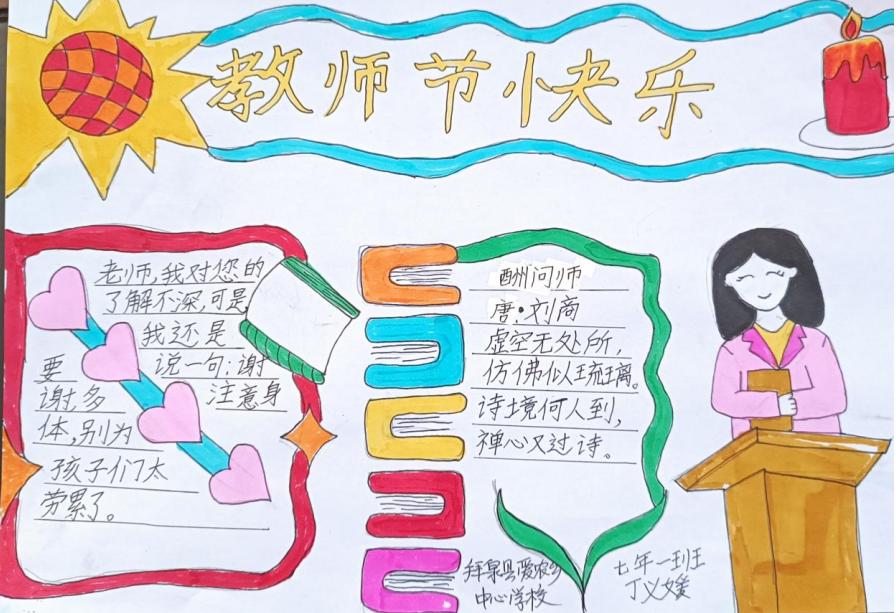 教师节快乐
老师,我对您的
了解不深,可是,
我还是
要 说一句:谢
谢,多 注意身
体,别为
孩子们太
劳累了。
酬问师
唐·刘商
虚空无处所,
仿佛似琉璃。
诗境何人到,
禅心又过诗。
拜泉县爱农乡
中心学校
七年一班
丁义媛